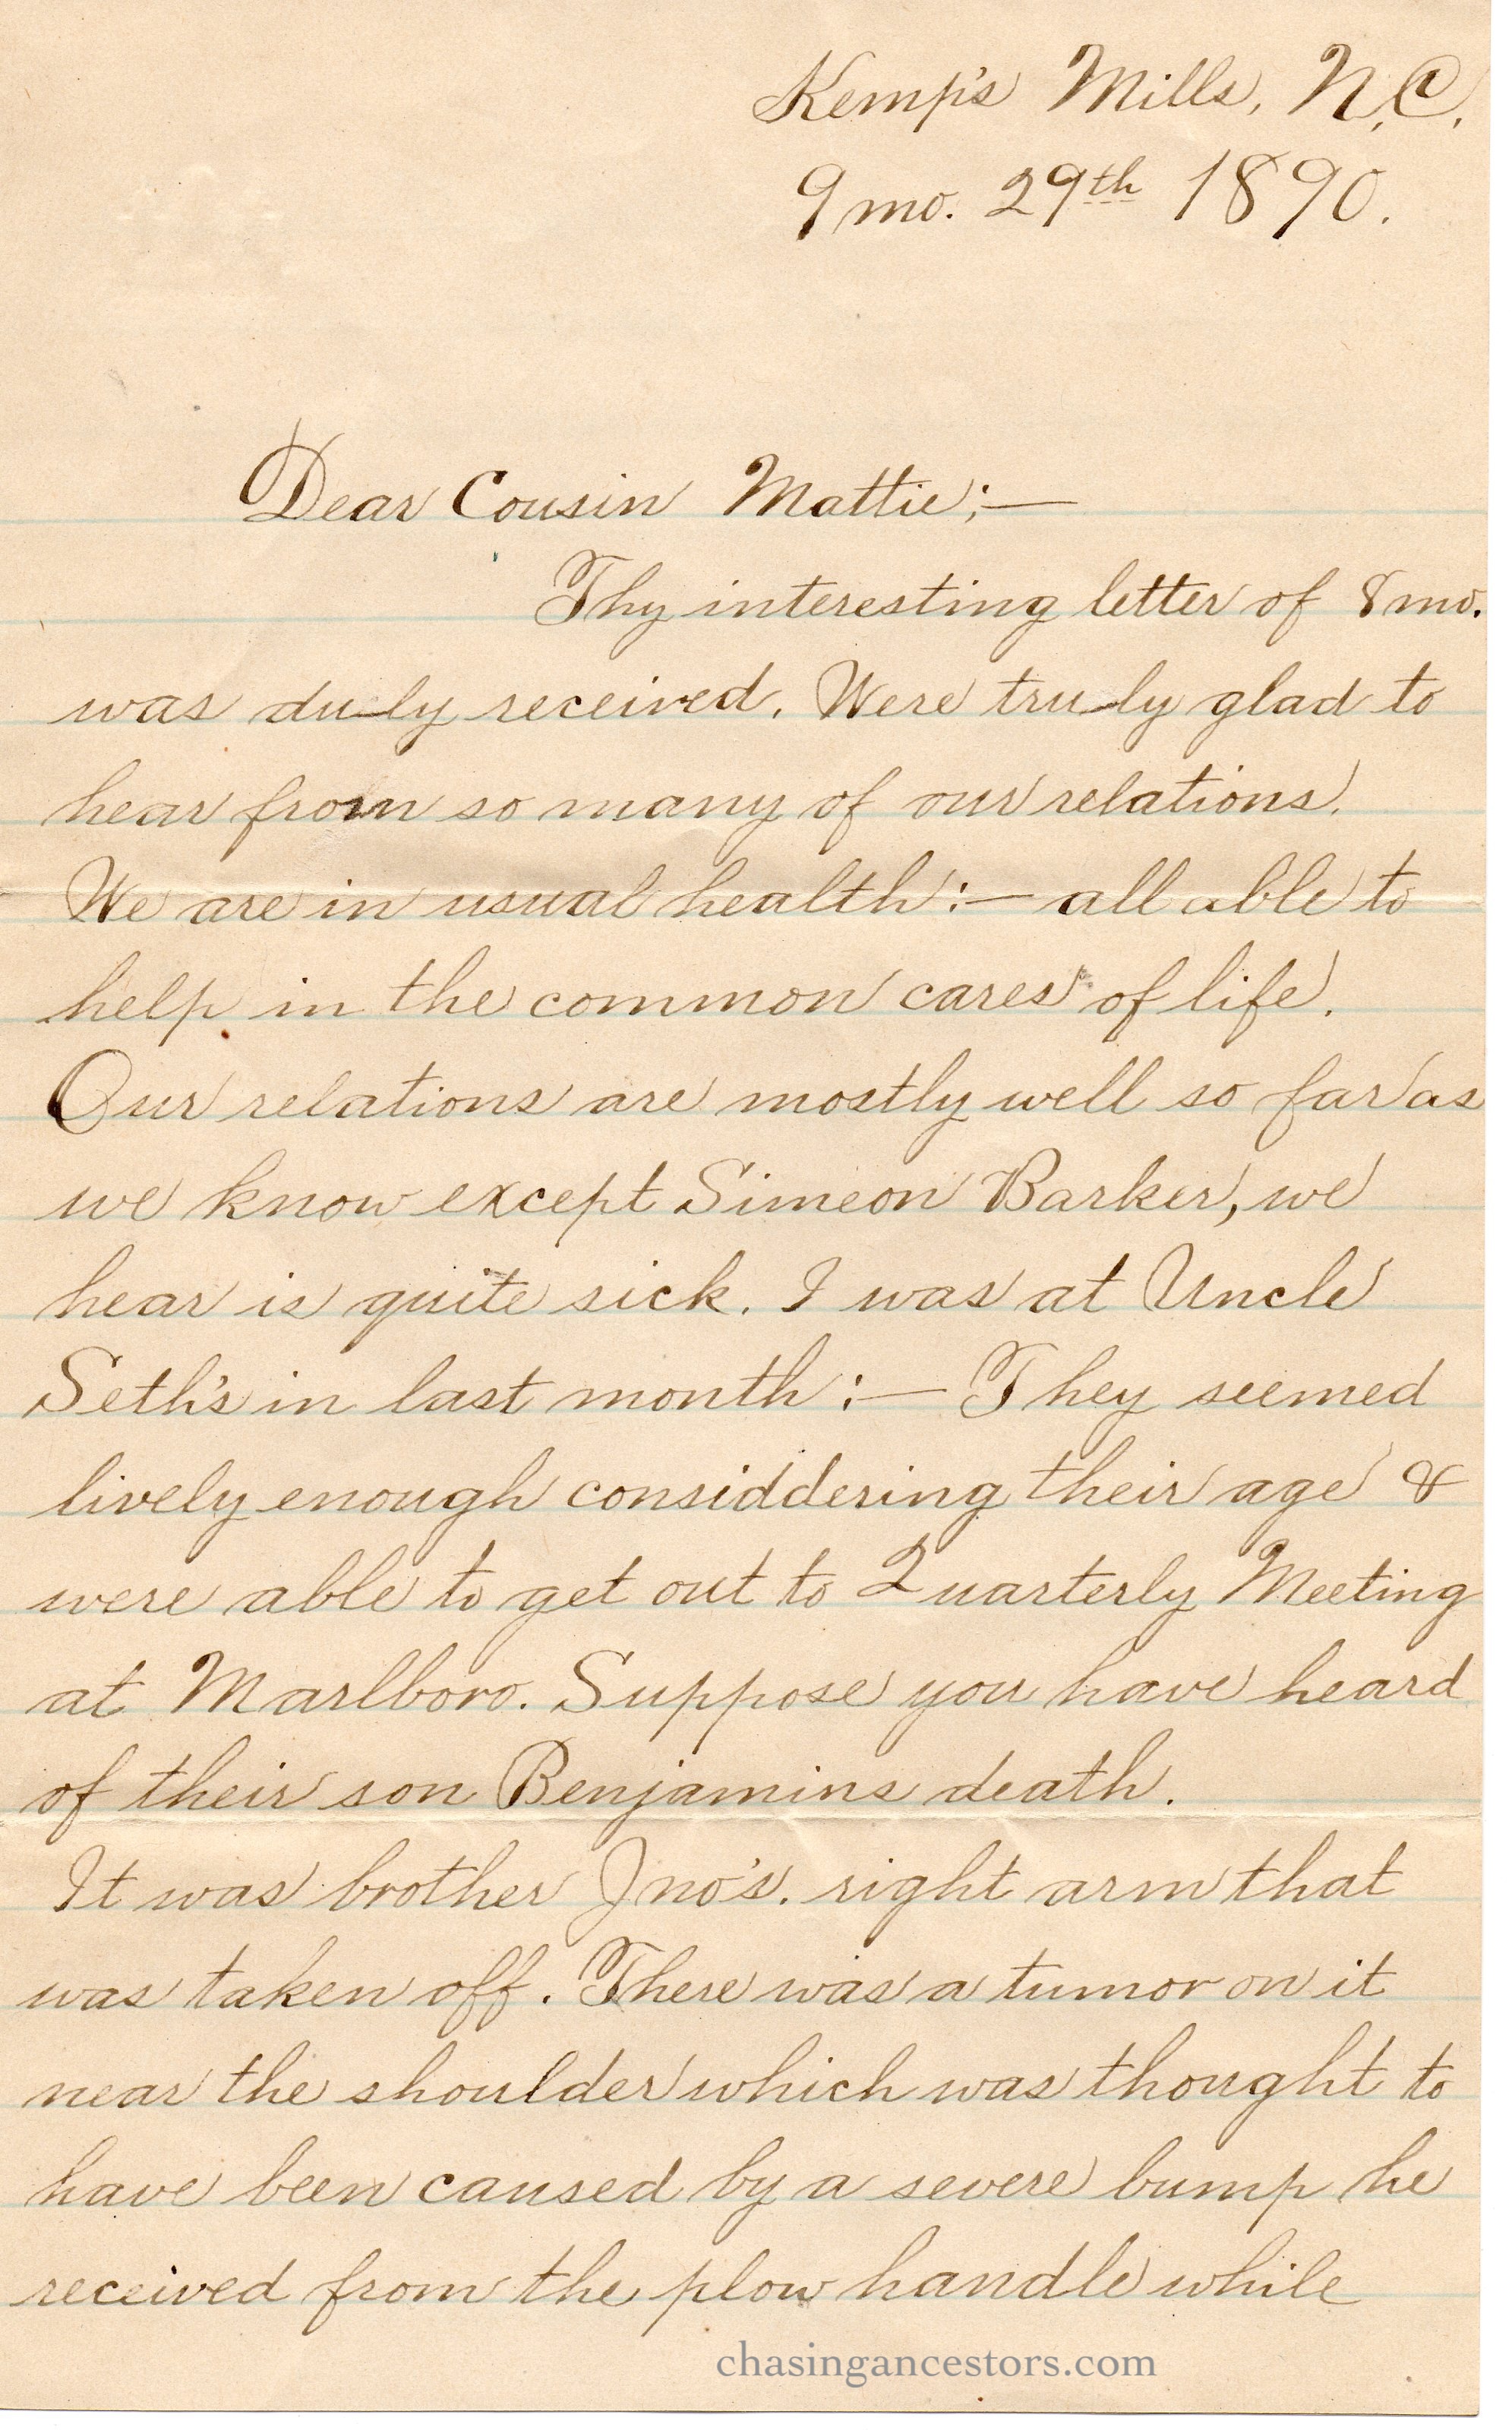 Kemp's Mills, N.C.
9 mo. 29th 1890.
Dear Cousin Mattie;—
Thy interesting letter of 8 mo.
was duly received. Were truly glad to
hear from so many of our relations.
We are in usual health:— all able to
help in the common cares of life.
Our relations are mostly well so far as
we know except Simeon Barker, we
hear is quite sick. I was at Uncle
Seth's in last month:— They seemed
lively enough considdering their age &
were able to get out to Quarterly Meeting
at Marlboro. Suppose you have heard
of their son Benjamins death.
It was brother Jno's. right arm that
was taken off. There was a tumor on it
near the shoulder which was thought to
have been caused by a severe bump he
received from the plow handle while
chasingancestors.com